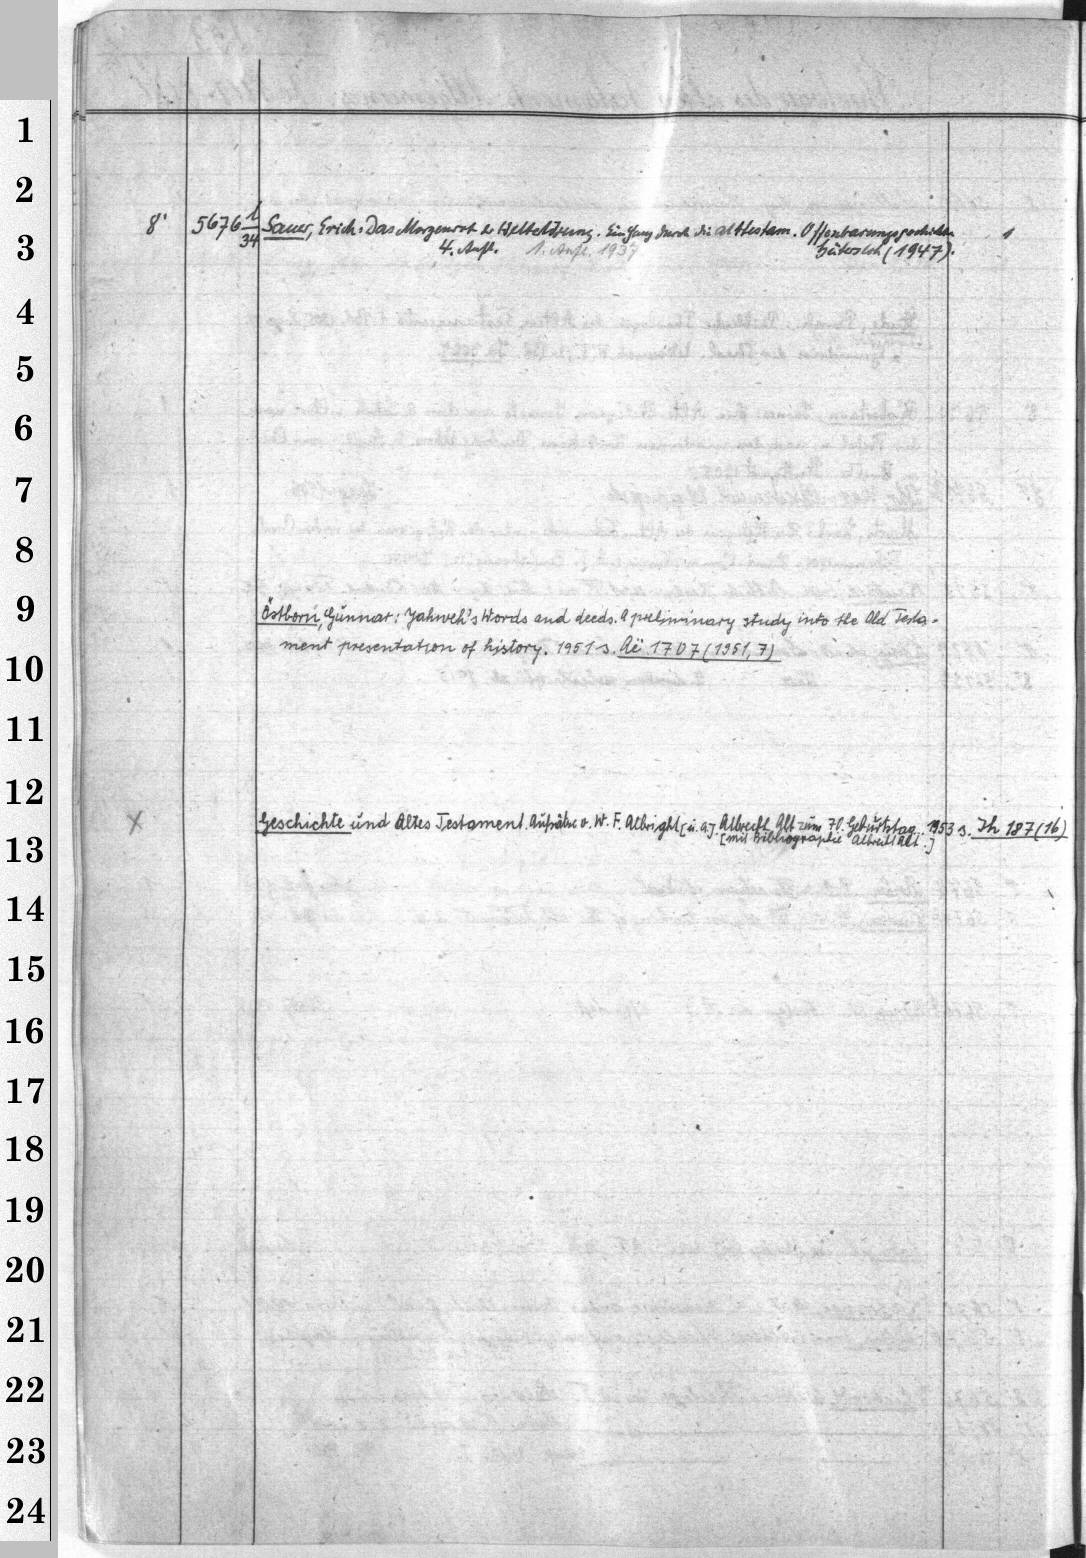 1
2
8' 5676 1/34 Sauer, Erich: Das Morgenrot d. Welterlösung. Ein Gang durch die alttestam. Offenbarungsgeschichte 1
3
4. Aufl. 1. Aufl. 1937 Gütersloh (1947).
4
5
6
7
8
9
Östborn, Gunnar: Yahweh's Words and deeds. A preliminary study into the Old Testa-
10
ment presentation of history. 1951 s. Aë 1707 (1951,7)
11
12
X Geschichte und Altes Testament. Aufsätze v. W. F. Albright [u. a.] Albrecht Alt zum 70. Geburtstag. 1953 s. Th 187 (16)
13
[mit Bibliographie Albrecht Alt.]
14
15
16
17
18
19
20
21
22
23
24